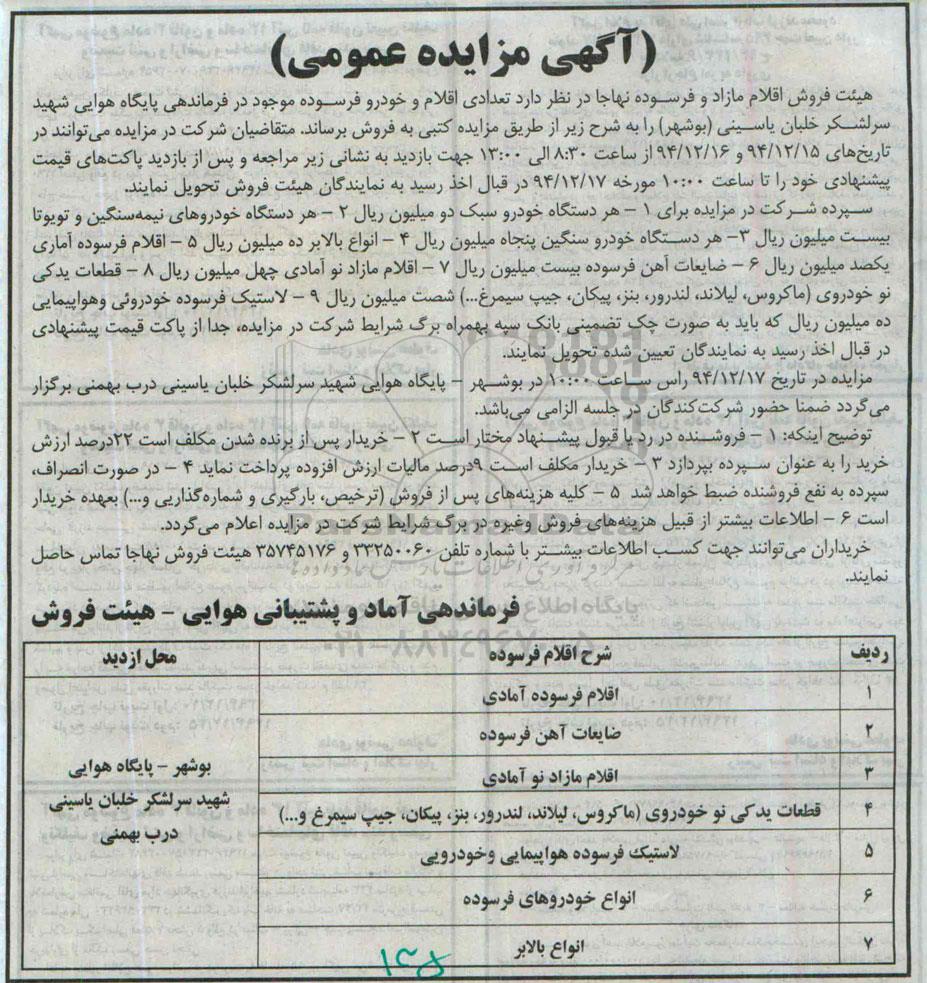 (آگهی مزایده عمومی)
هیئت فروش اقلام مازاد و فرسوده نهاجا در نظر دارد تعدادی اقلام و خودرو فرسوده موجود در فرماندهی پایگاه هوایی شهید
سرلشکر خلبان یاسینی (بوشهر) را به شرح زیر از طریق مزایده کتبی به فروش برساند. متقاضیان شرکت در مزایده می‌توانند در
تاریخ‌های ۹۴/۱۲/۱۵ و ۹۴/۱۲/۱۶ از ساعت ۸:۳۰ الی ۱۳:۰۰ جهت بازدید به نشانی زیر مراجعه و پس از بازدید پاکت‌های قیمت
پیشنهادی خود را تا ساعت ۱۰:۰۰ مورخه ۹۴/۱۲/۱۷ در قبال اخذ رسید به نمایندگان هیئت فروش تحویل نمایند.
سپرده شرکت در مزایده برای ۱ – هر دستگاه خودرو سبک دو میلیون ریال ۲ – هر دستگاه خودروهای نیمه‌سنگین و تویوتا
بیست میلیون ریال ۳– هر دستگاه خودرو سنگین پنجاه میلیون ریال ۴ – انواع بالابر ده میلیون ریال ۵ – اقلام فرسوده آماری
یکصد میلیون ریال ۶ – ضایعات آهن فرسوده بیست میلیون ریال ۷ – اقلام مازاد نو آمادی چهل میلیون ریال ۸ – قطعات یدکی
نو خودروی (ماکروس، لیلاند، لندرور، بنز، پیکان، جیپ سیمرغ...) شصت میلیون ریال ۹ – لاستیک فرسوده خودروئی وهواپیمایی
ده میلیون ریال که باید به صورت چک تضمینی بانک سپه بهمراه برگ شرایط شرکت در مزایده، جدا از پاکت قیمت پیشنهادی
در قبال اخذ رسید به نمایندگان تعیین شده تحویل نمایند.
مزایده در تاریخ ۹۴/۱۲/۱۷ راس ساعت ۱۰:۰۰ در بوشهر – پایگاه هوایی شهید سرلشکر خلبان یاسینی درب بهمنی برگزار
می‌گردد ضمنا حضور شرکت‌کندگان در جلسه الزامی می‌باشد.
توضیح اینکه: ۱ – فروشنده در رد یا قبول پیشنهاد مختار است ۲ – خریدار پس از برنده شدن مکلف است ۲۲درصد ارزش
خرید را به عنوان سپرده بپردازد ۳ – خریدار مکلف است ۹درصد مالیات ارزش افزوده پرداخت نماید ۴ – در صورت انصراف،
سپرده به نفع فروشنده ضبط خواهد شد ۵ – کلیه هزینه‌های پس از فروش (ترخیص، بارگیری و شماره‌گذاریی و...) بعهده خریدار
است ۶ – اطلاعات بیشتر از قبیل هزینه‌های فروش وغیره در برگ شرایط شرکت در مزایده اعلام می‌گردد.
خریداران می‌توانند جهت کسب اطلاعات بیشتر با شماره تلفن ۳۳۲۵۰۰۶۰ و ۳۵۷۴۵۱۷۶ هیئت فروش نهاجا تماس حاصل
نمایند.
فرماندهی آماد و پشتیبانی هوایی – هیئت فروش
ردیف شرح اقلام فرسوده محل ازدید
۱ اقلام فرسوده آمادی
۲ ضایعات آهن فرسوده
۳ اقلام مازاد نو آمادی
۴ قطعات یدکی نو خودروی (ماکروس، لیلاند، لندرور، بنز، پیکان، جیپ سیمرغ و...)
۵ لاستیک فرسوده هواپیمایی وخودرویی
۶ انواع خودروهای فرسوده
۷ انواع بالابر
بوشهر – پایگاه هوایی
شهید سرلشکر خلبان یاسینی
درب بهمنی